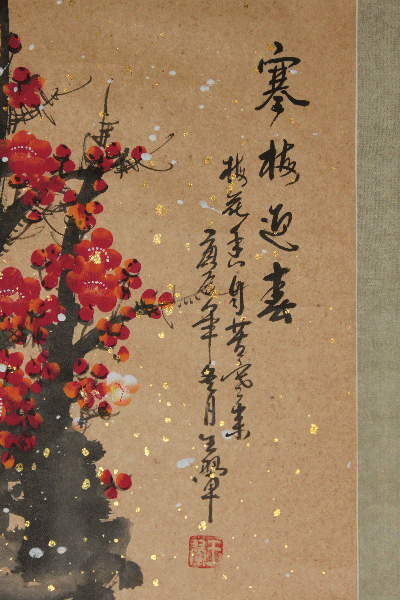 寒梅迎春
梅花香自苦寒来
庚辰年冬月王